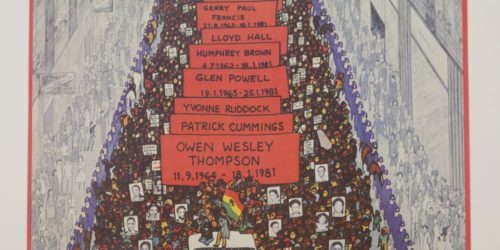 GERRY PAUL
FRANCIS
LLOYD HALL
HUMPHREY BROWN
GLEN POWELL
19.1.1965-25.1.1981
YVONNE RUDDOCK
PATRICK CUMMINGS
OWEN WESLEY
THOMPSON
11.9.1964 - 18.1.1981